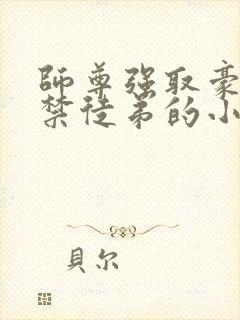 師尊強取豪
禁徒弟的小
貝尔